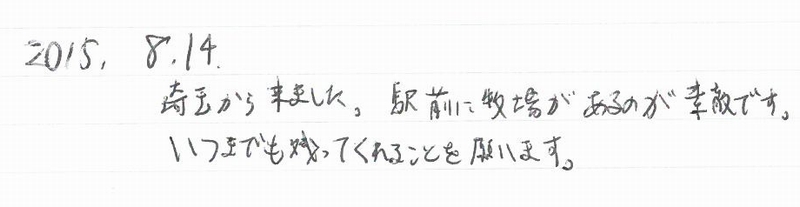 2015. 8.14.
埼玉から来ました。駅前に牧場があるのが素敵です。
いつまでも残ってくれることを願います。